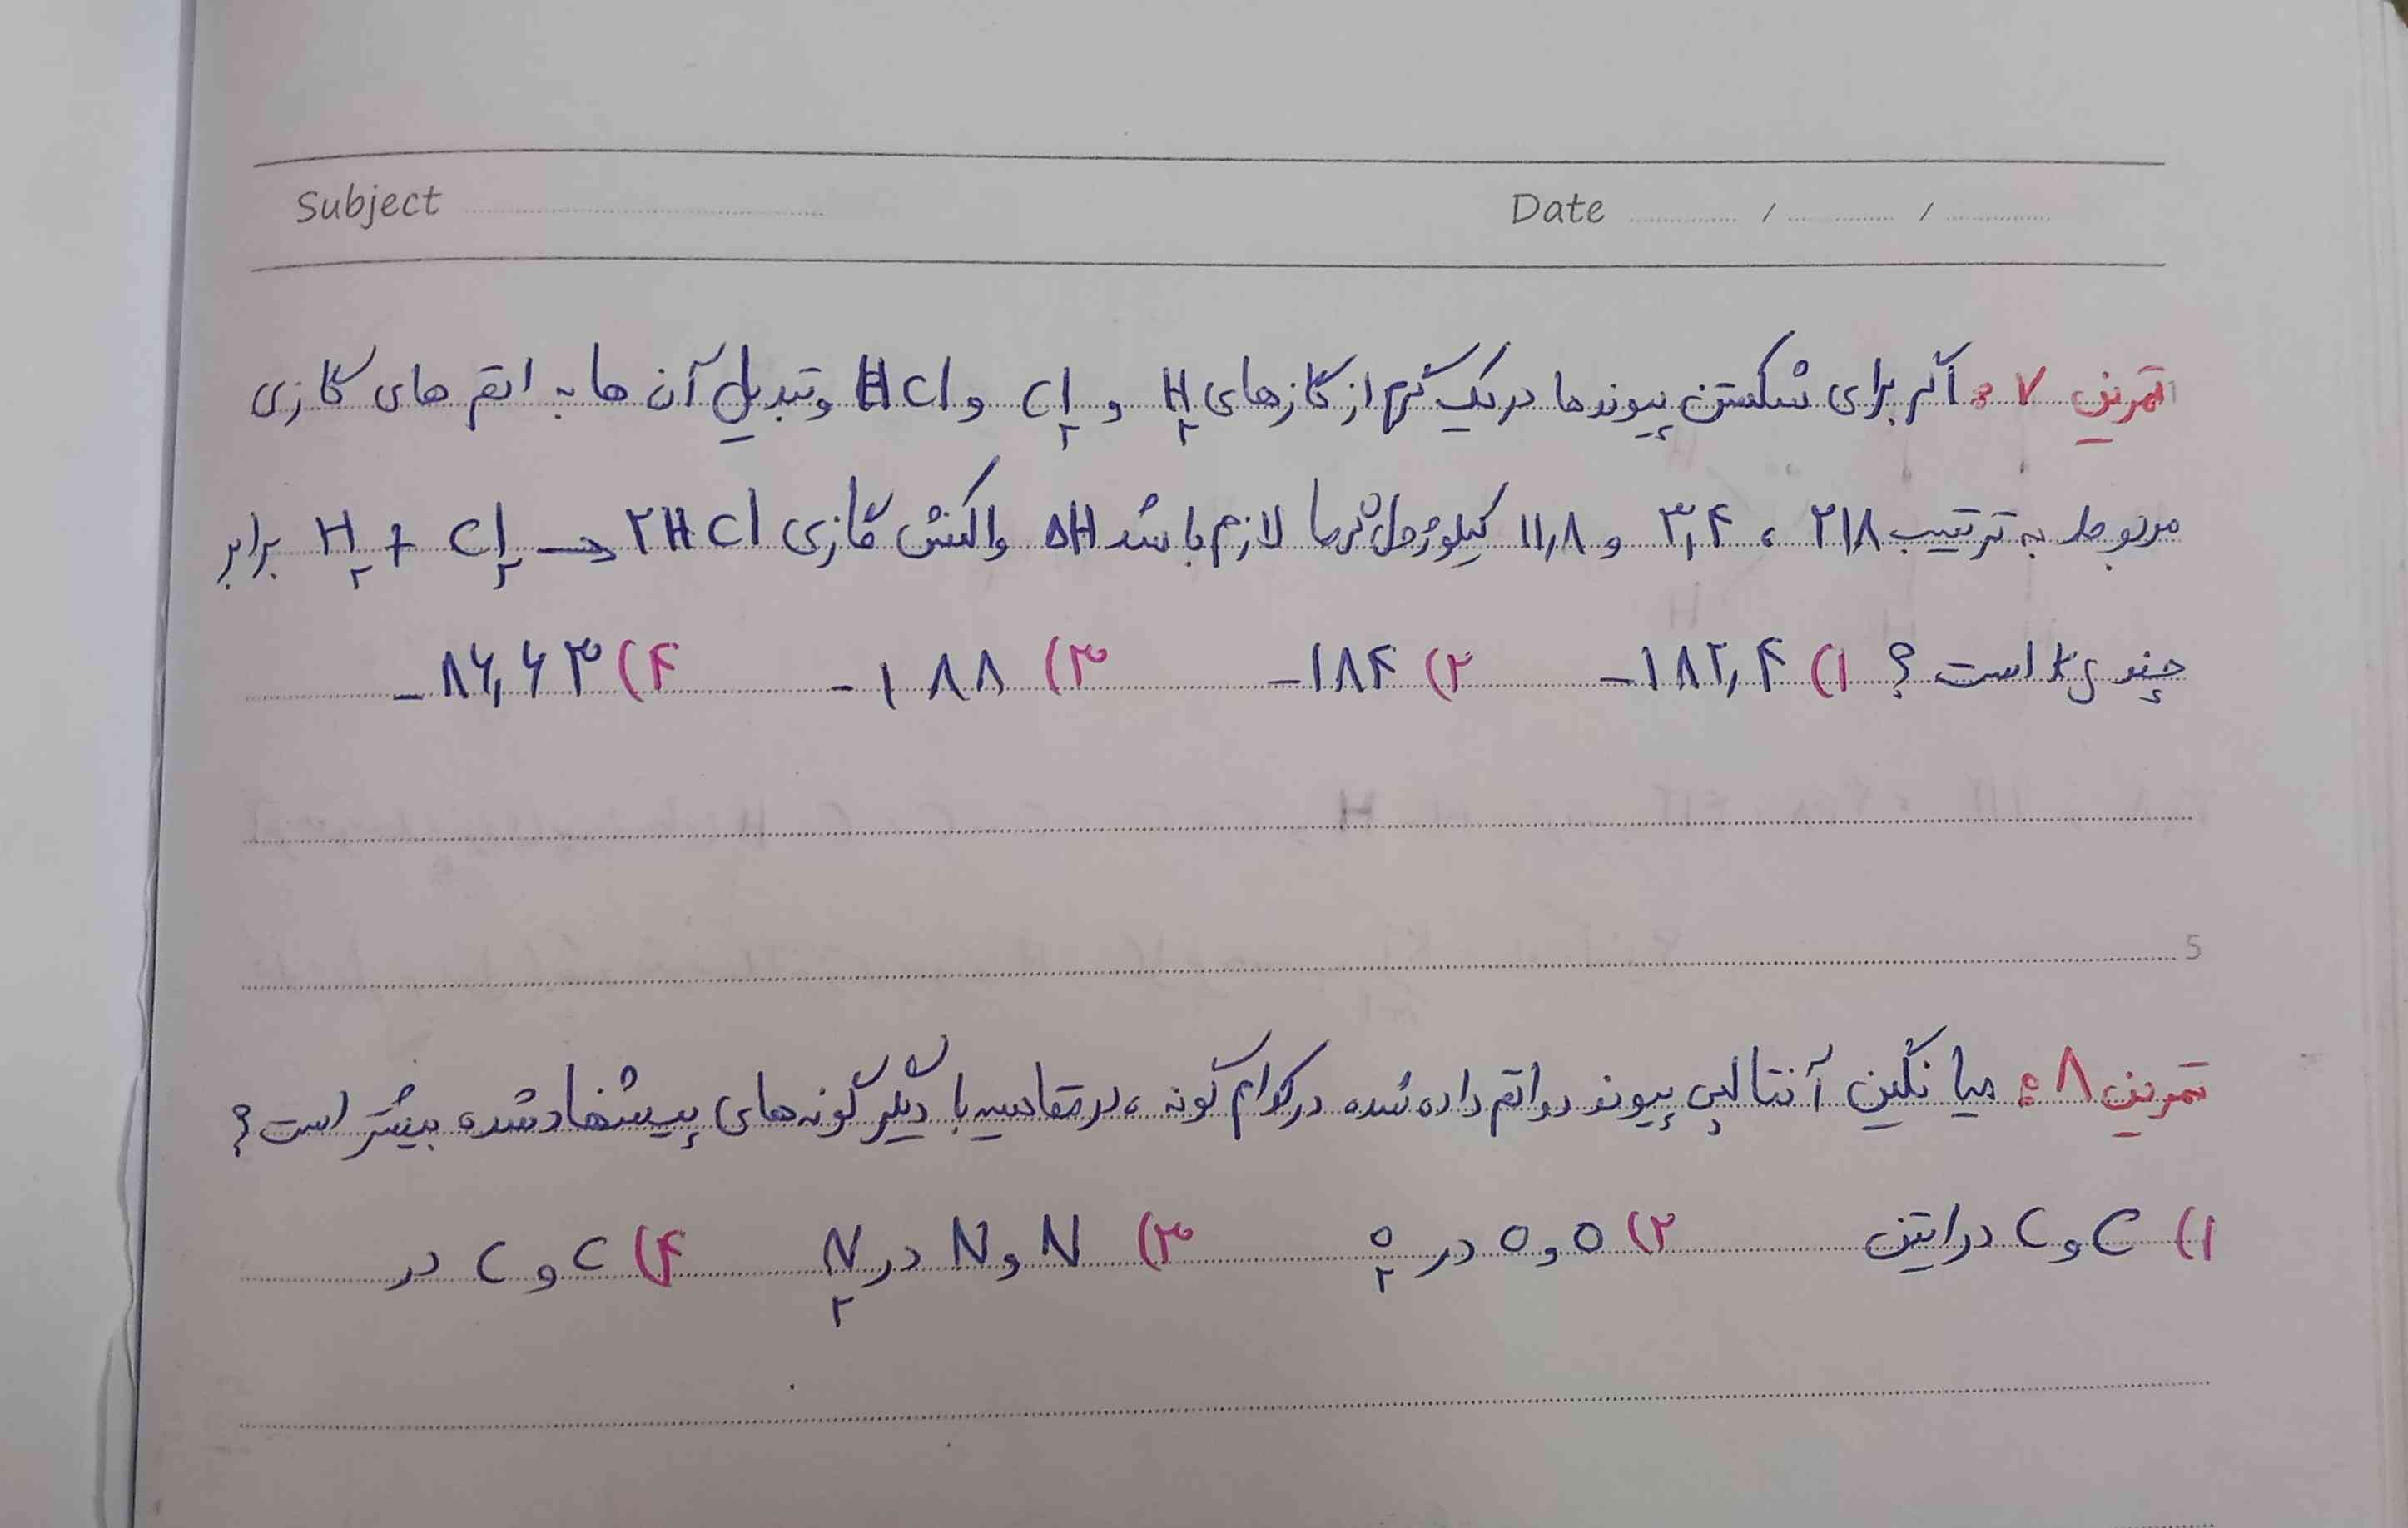 Subject Date / /
تمرین ۷: اگر برای شکستن پیوندها در یک گرم از گازهای H₂ و Cl₂ و HCl و تبدیل آن ها به اتم های گازی
مربوط به ترتیب ۲۱۸ ، ۳,۴ و ۱۱,۸ کیلوژول گرما لازم باشد ΔH واکنش گازی H₂ + Cl₂ → ۲HCl برابر
چند kJ است؟ ۱) -۱۸۲,۴ ۲) -۱۸۴ ۳) -۱۸۸ ۴) -۸۶,۶۳
5
تمرین ۸: میانگین آنتالپی پیوند دو اتم داده شده در کدام گونه ، در مقایسه با دیگر گونه های پیشنهاد شده بیشتر است؟
۱) C و C در اتین ۲) O و O در O₂ ۳) N و N در N₂ ۴) C و C در